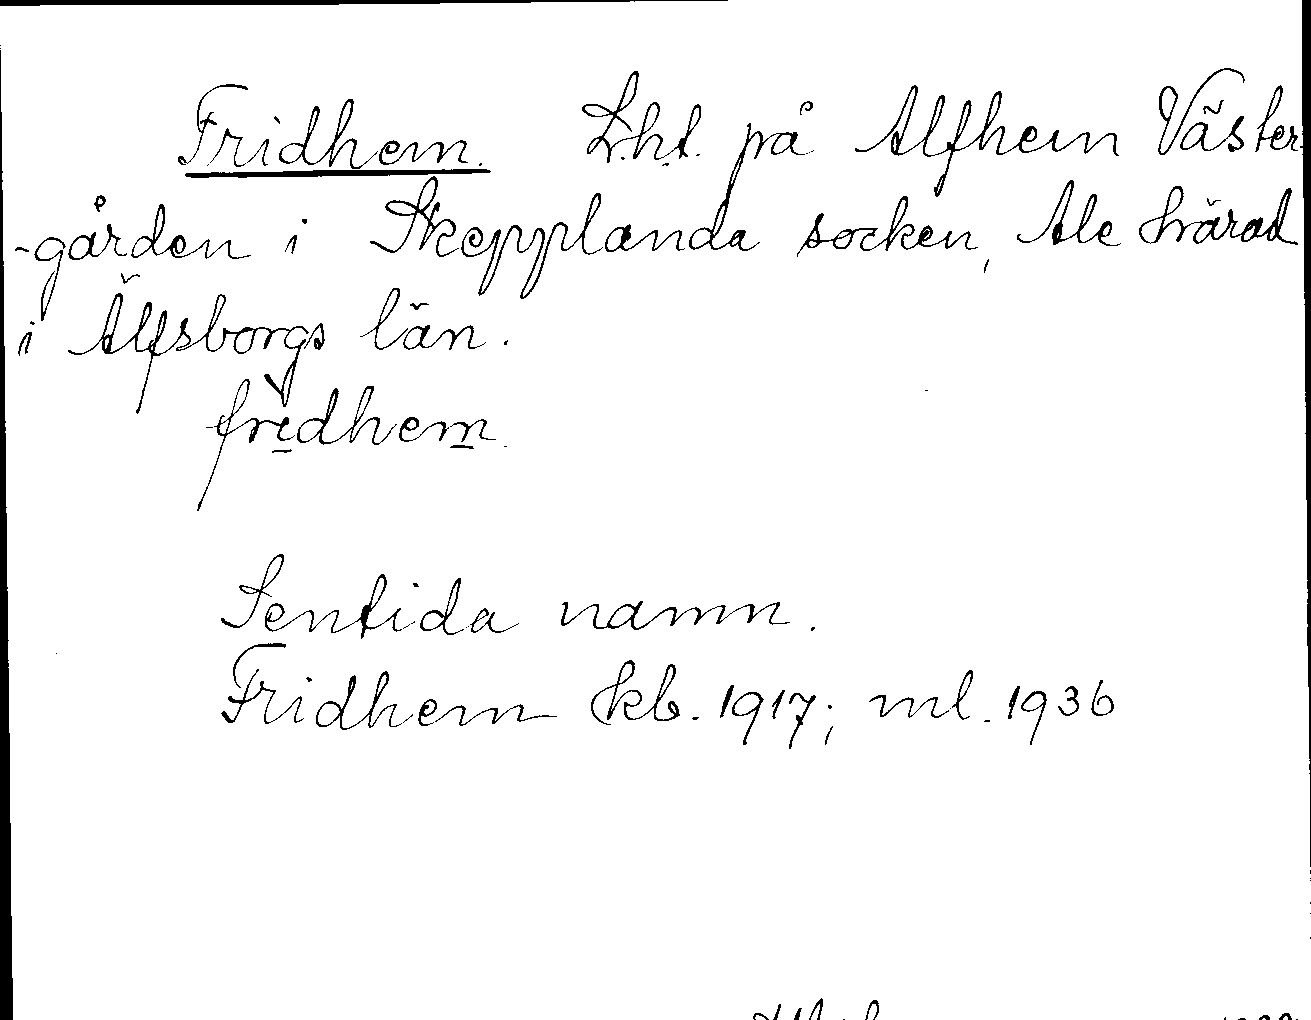 Fridhem. L.h.t. på Alfhem Väster
-gården i Skepplanda socken, Ale härad
i Älfsborgs län.
fri̱dhem̱
Sentida namn.
Fridhem kb. 1917; ml. 1936